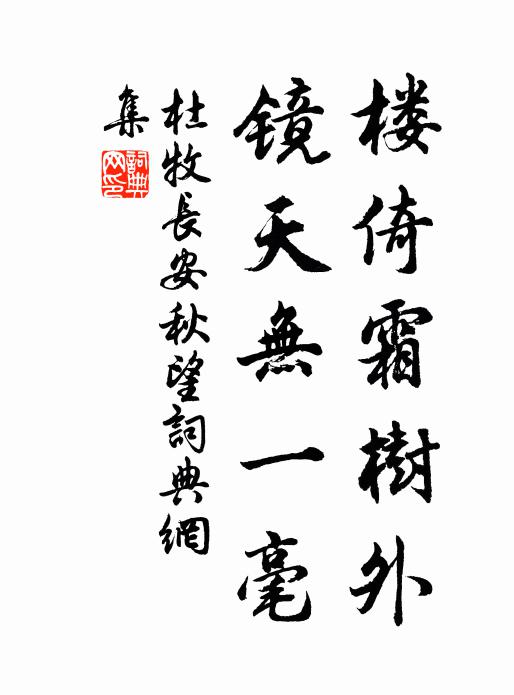 楼倚霜樹外
镜天無一毫
杜牧長安秋望詞典網
集
詞典网印